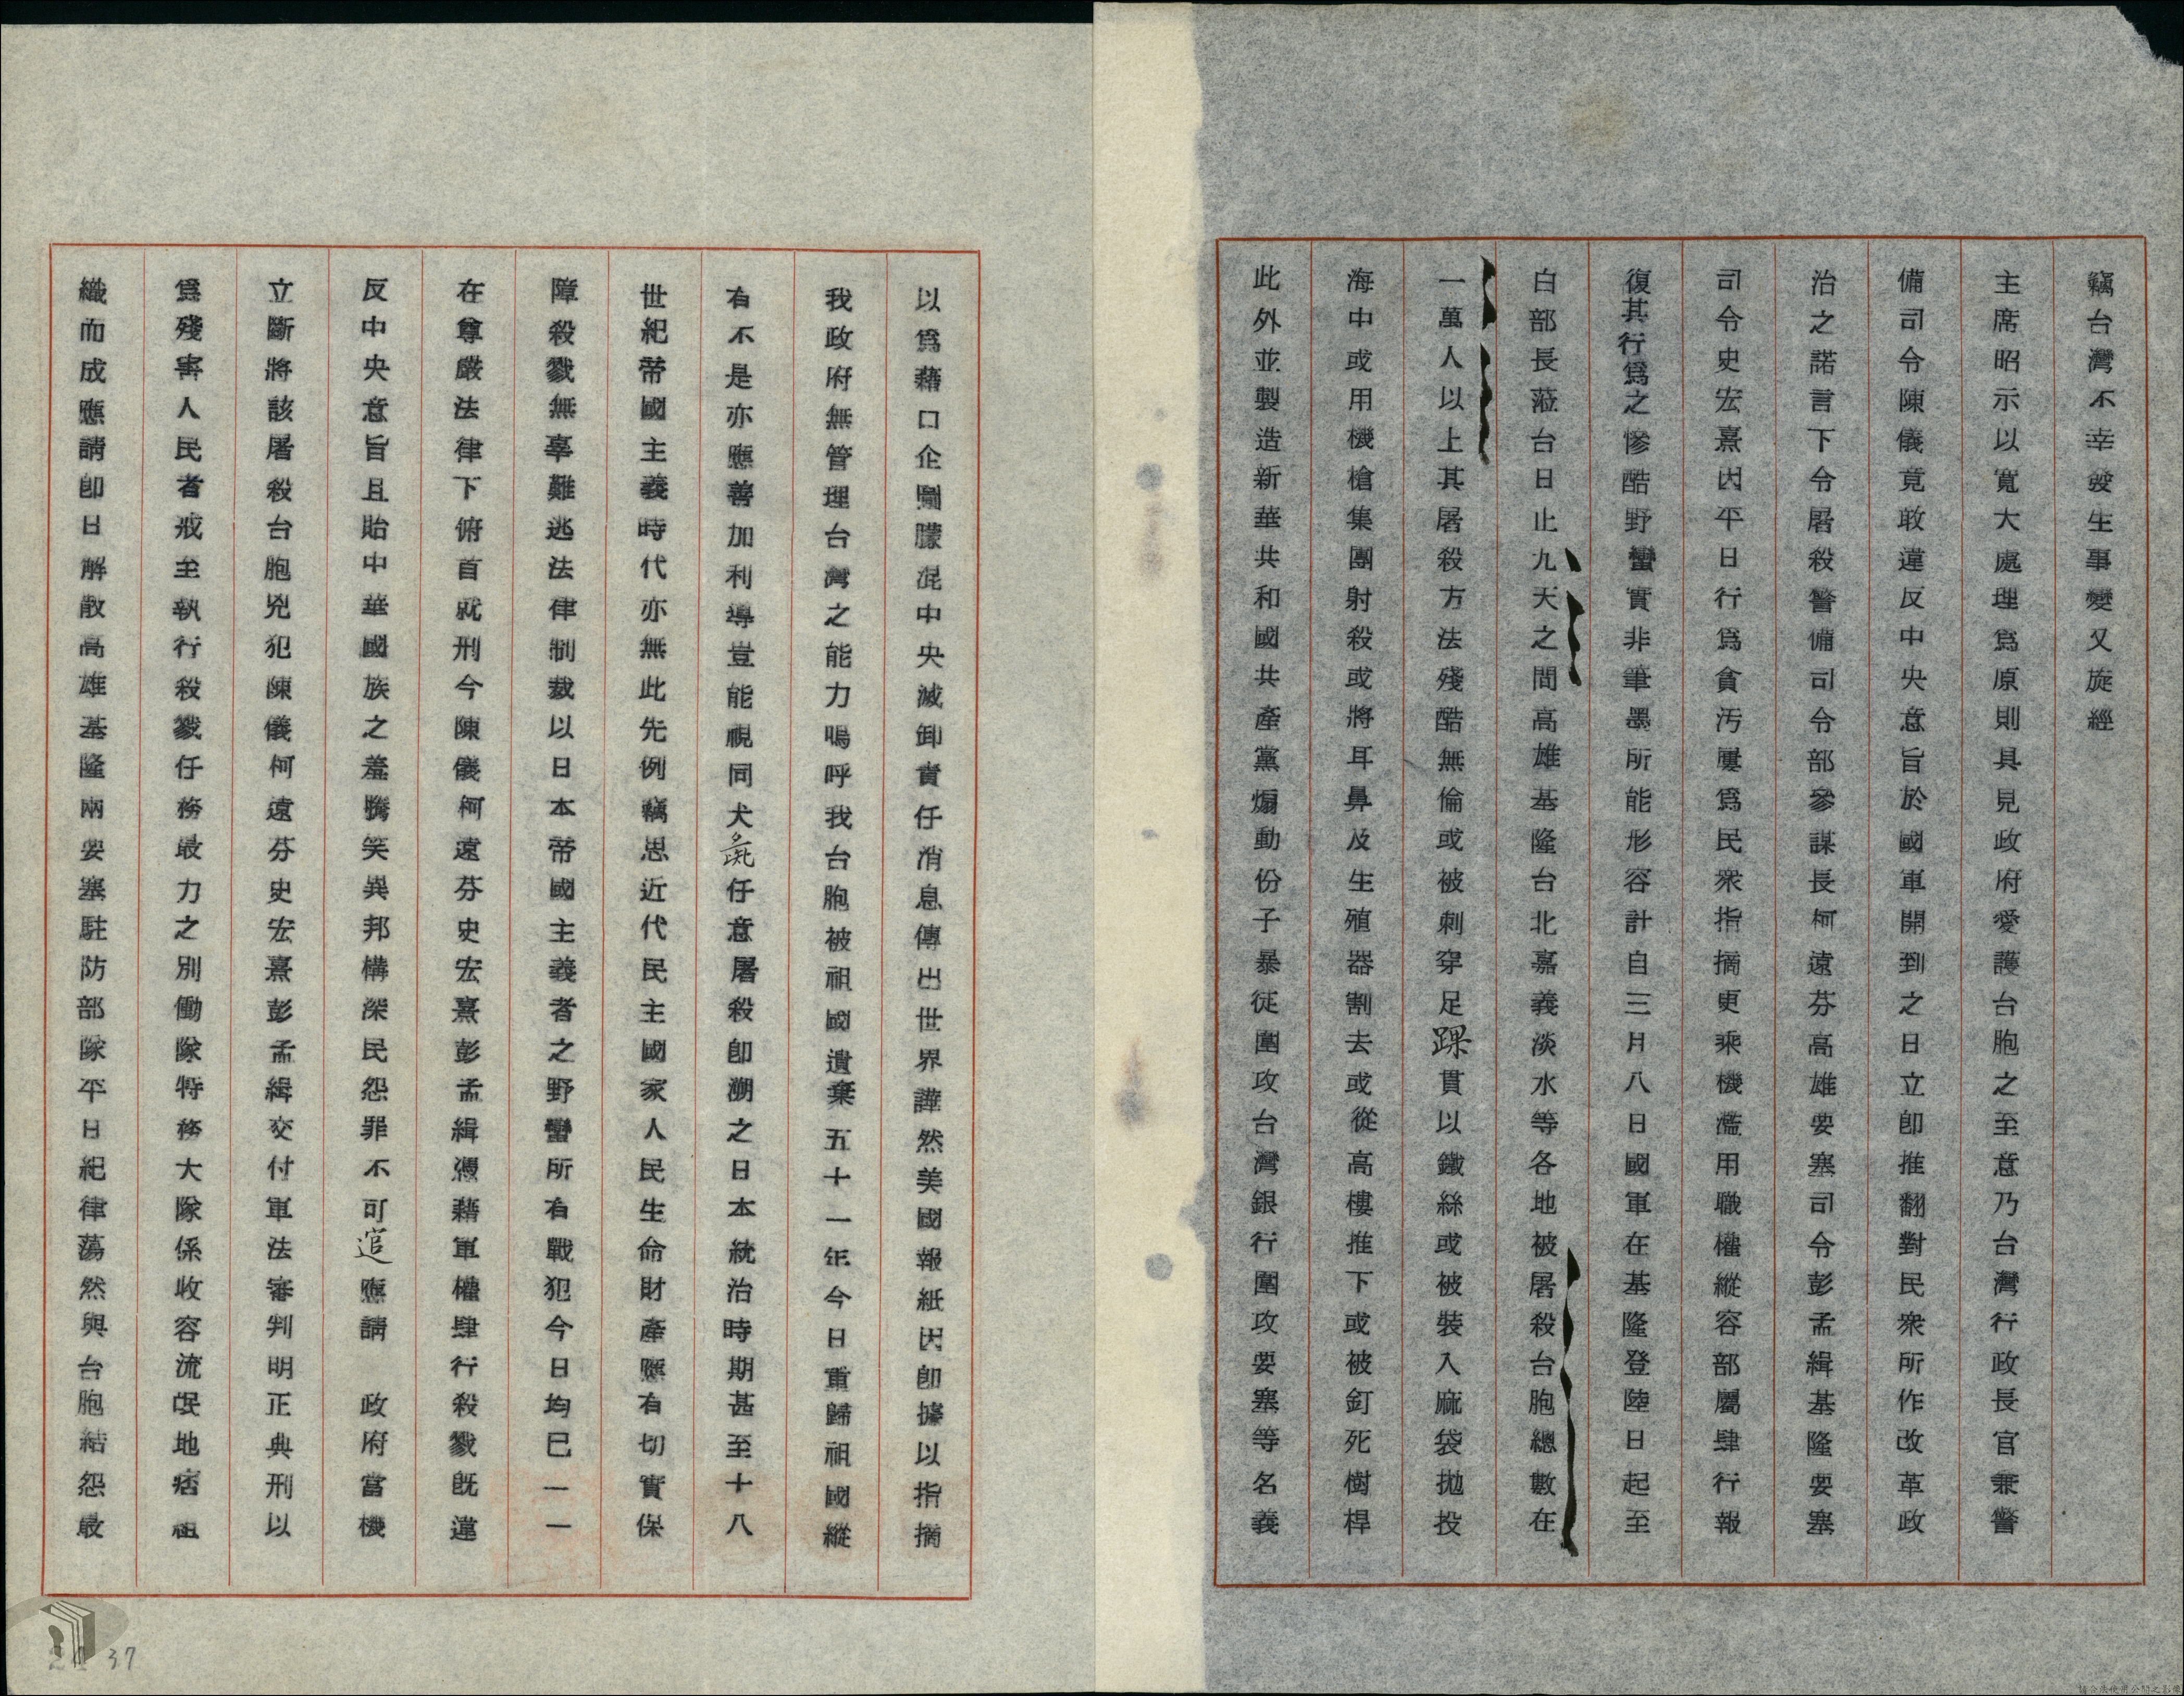 竊台灣不幸發生事變又旋經
主席昭示以寬大處理爲原則具見政府愛護台胞之至意乃台灣行政長官兼警
備司令陳儀竟敢違反中央意旨於國軍開到之日立卽推翻對民衆所作改革政
治之諾言下令屠殺警備司令部參謀長柯遠芬高雄要塞司令彭孟緝基隆要塞
司令史宏熹因平日行爲貪汚屢爲民衆指摘更乘機濫用職權縱容部屬肆行報
復其行爲之慘酷野蠻實非筆墨所能形容計自三月八日國軍在基隆登陸日起至
白部長蒞台日止九天之間高雄基隆台北嘉義淡水等各地被屠殺台胞總數在
一萬人以上其屠殺方法殘酷無倫或被刺穿足踝貫以鐵絲或被裝入麻袋拋投
海中或用機槍集團射殺或將耳鼻及生殖器割去或從高樓推下或被釘死樹桿
此外並製造新華共和國共產黨煽動份子暴徒圍攻台灣銀行圍攻要塞等名義
以爲藉口企圖朦混中央減卸責任消息傳出世界譁然美國報紙因卽據以指摘
我政府無管理台灣之能力嗚呼我台胞被祖國遺棄五十一年今日重歸祖國縱
有不是亦應善加利導豈能視同犬彘任意屠殺卽溯之日本統治時期甚至十八
世紀帝國主義時代亦無此先例竊思近代民主國家人民生命財產應有切實保
障殺戮無辜難逃法律制裁以日本帝國主義者之野蠻所有戰犯今日均已一一
在尊嚴法律下俯首就刑今陳儀柯遠芬史宏熹彭孟緝憑藉軍權肆行殺戮旣違
反中央意旨且貽中華國族之羞騰笑異邦構深民怨罪不可逭應請　政府當機
立斷將該屠殺台胞兇犯陳儀柯遠芬史宏熹彭孟緝交付軍法審判明正典刑以
爲殘害人民者戒至執行殺戮任務最力之別働隊特務大隊係收容流氓地痞組
織而成應請卽日解散高雄基隆兩要塞駐防部隊平日紀律蕩然與台胞結怨最
37